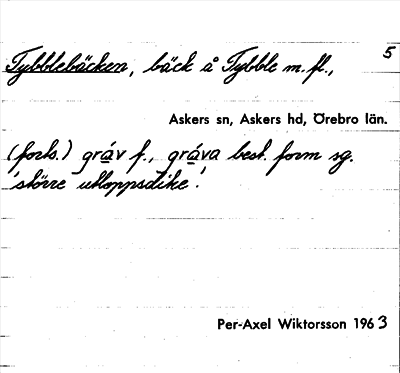 5
Tybblebäcken, bäck å Tybble m. fl.,
Askers sn, Askers hd, Örebro län.
(forts.) gráv f., gráva best. form sg.
'större utloppsdike'.
Per-Axel Wiktorsson 1963